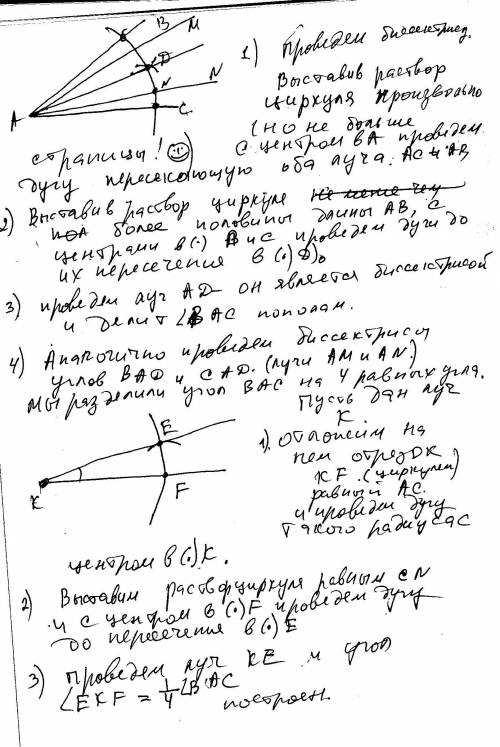 B
M
D
N
N
A
C
1) Проведем биссектрису.
Выставив раствор
циркуля произвольно
(но не больше
страницы!) с центром в A проведем
дугу пересекающую оба луча. AC и AB
2) Выставив раствор циркуля не менее чем
более половины длины AB, с
центрами в (.) B и C проведем дуги до
их пересечения в (.) D.
3) проведем луч AD он является биссектрисой
и делит ∠BAC пополам.
4) Аналогично проведем биссектрисы
углов BAD и CAD. (лучи AM и AN)
Мы разделили угол BAC на 4 равных угла.
Пусть дан луч
K.
E
K
F
1). отложим на
нем отрезок
KF. (циркулем)
равный AC.
и проведем дугу
такого радиуса с
центром в (.) K.
2) Выставим раствор циркуля равным CN
и с центром в (.) F проведем дугу
до пересечения в (.) E
3) проведем луч KE и угол
∠EKF = 1/4 ∠BAC
построен.